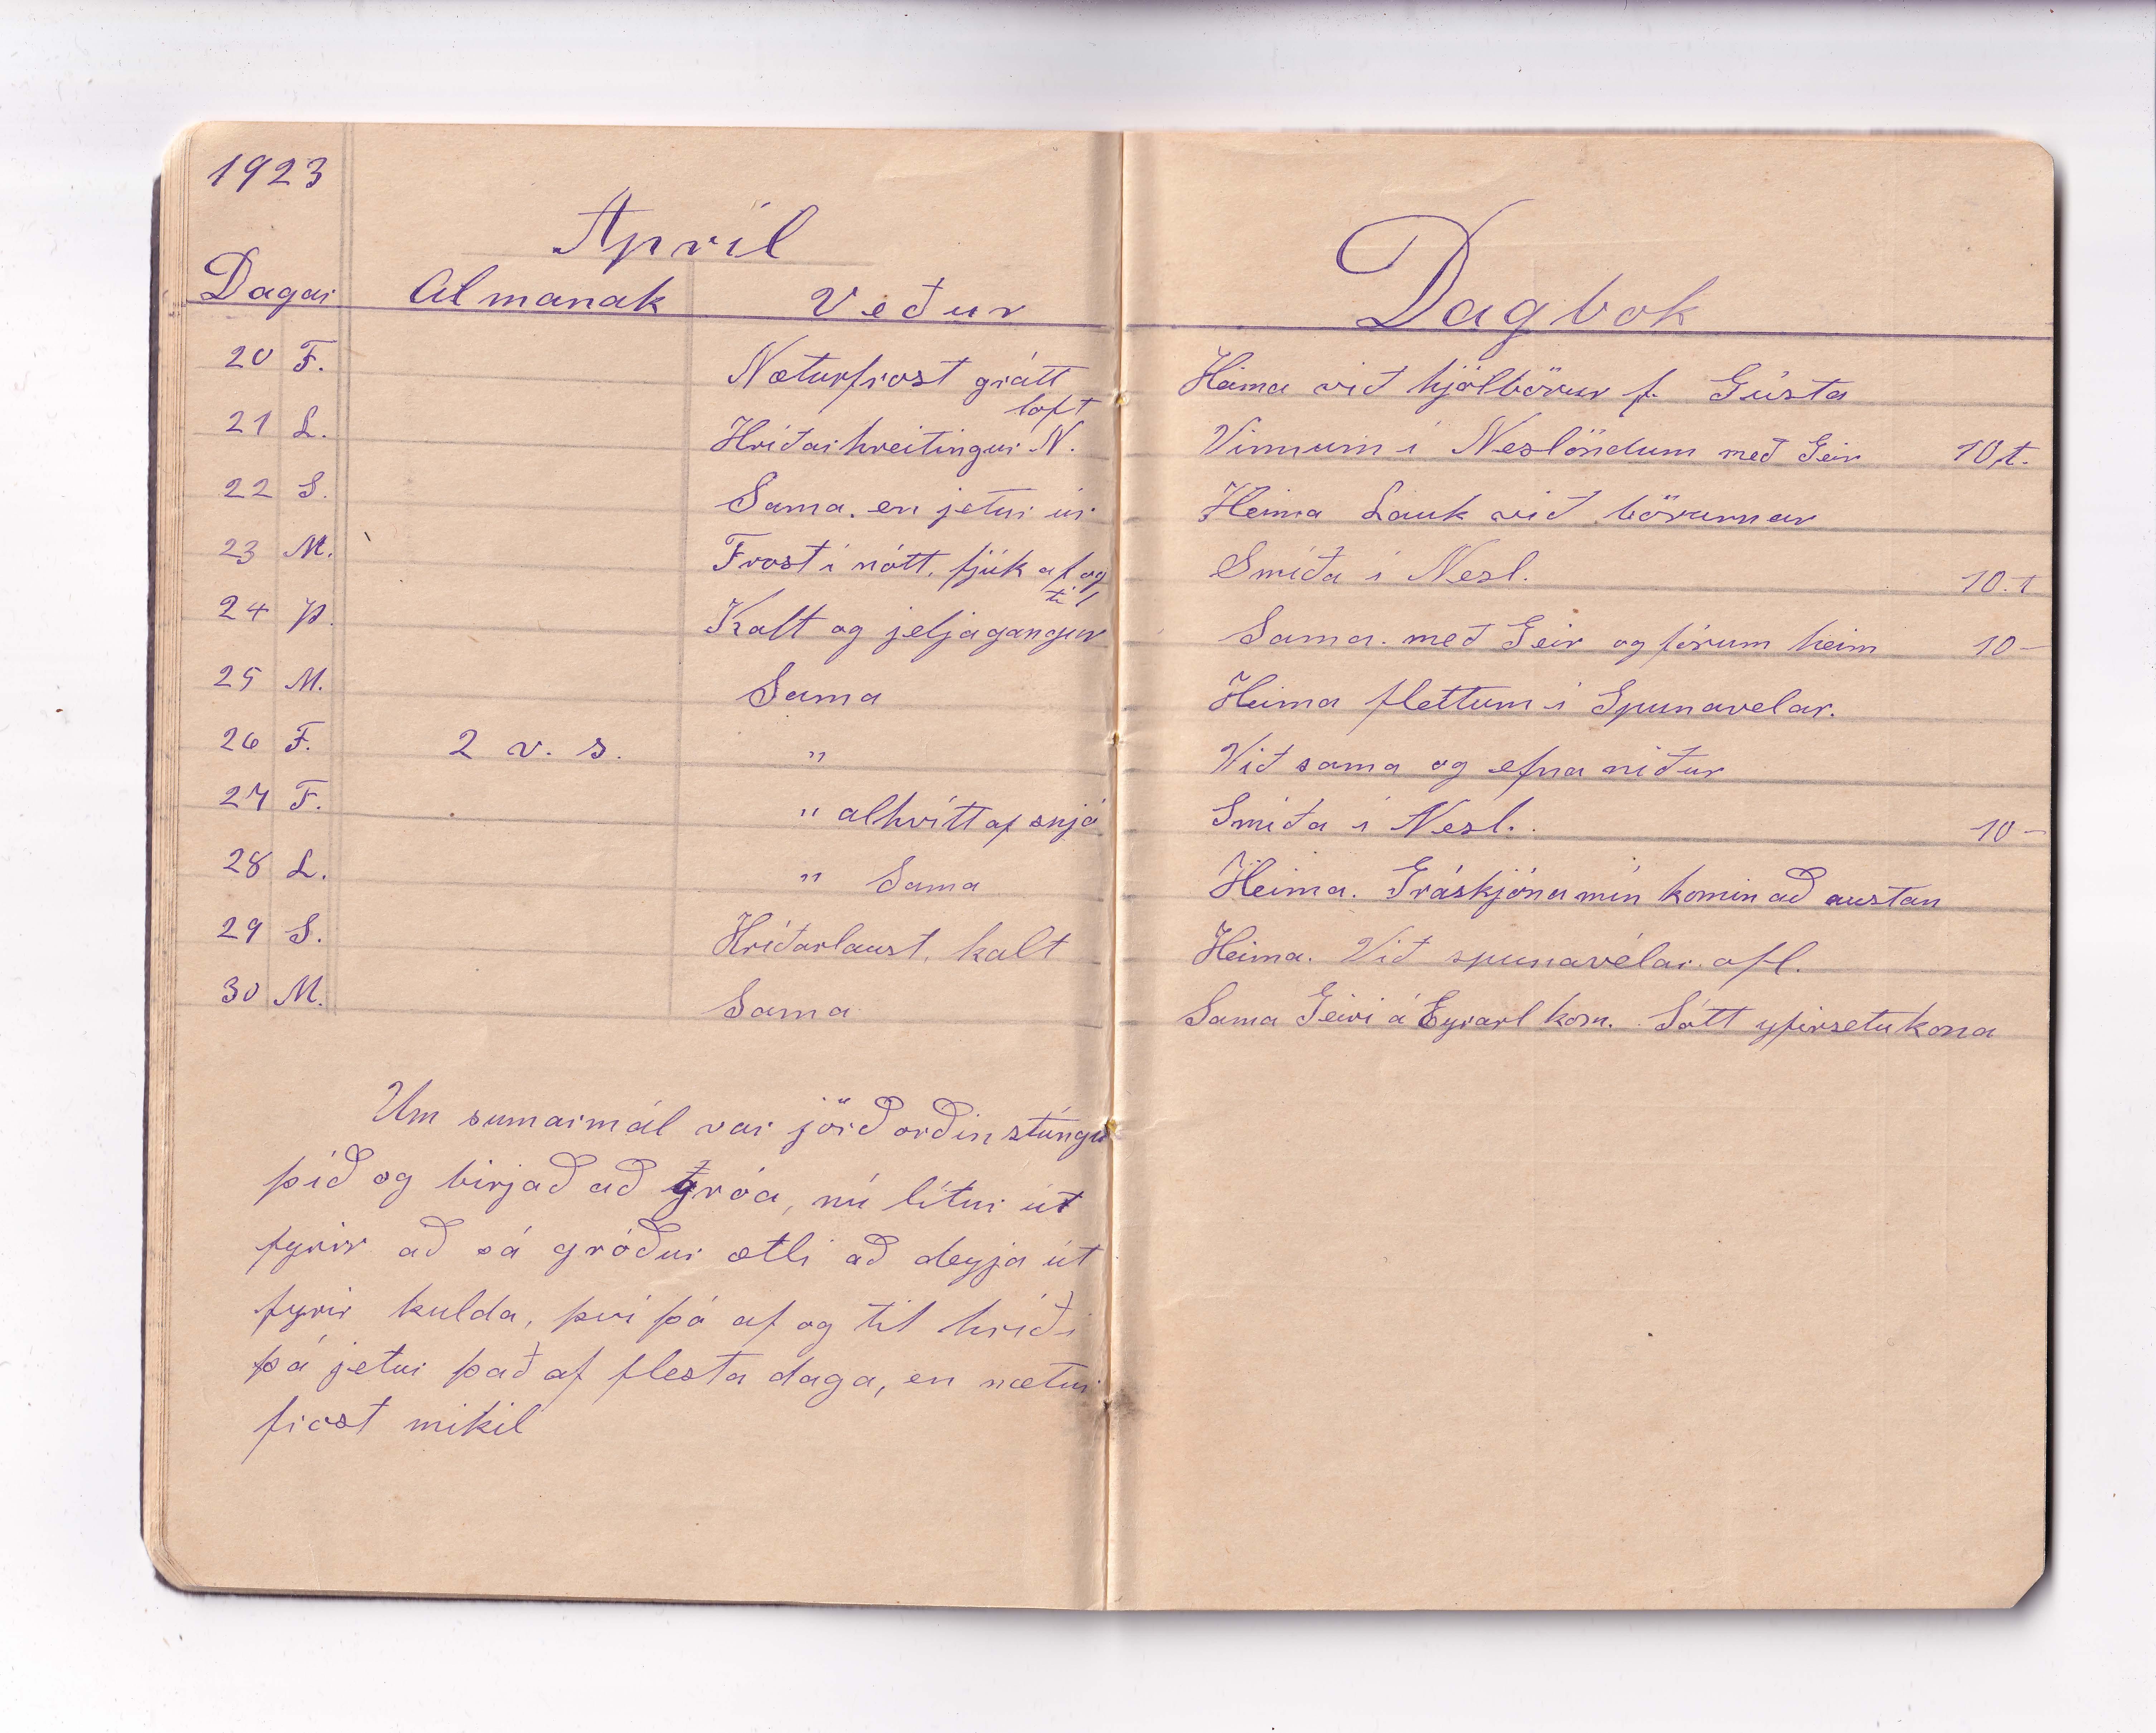 1923
Apríl
Dagar Almanak Veður Dagbok
20 F. Næturfrost grátt loft Heima við hjólbörur f. Gústa
21 L. Hríðarhreitingur N. Vinnum í Neslöndum með Geir 10 t.
22 S. Sama. en jetur úr Heima Lauk við börurnar
23 M. Frost í nótt, fjúk af og til Smíða í Nesl. 10. t
24 Þ. Kalt og jeljagangur Sama. með Geir og fórum heim 10 –
25 M. Sama Heima flettum í Spunavelar.
26 F. 2 v. s. " Við sama og efna niður
27 F. " alhvítt af snjó Smíða í Nesl. 10 –
28 L. " Sama Heima. Gráskjóna mín komin að austan
29 S. Hríðarlaust, kalt Heima. Við spunavélar. ofl.
30 M. Sama Sama Geiri á Eyrarl kom. Sótt yfirsetukona
Um sumarmál var jörð orðin stúngu
þíð og birjað að gróa, nú lítur út
fyrir að sá gróður ætli að deyja út
fyrir kulda, því þó af og til hríði
þá jetur það af flesta daga, en nætur
frost mikil